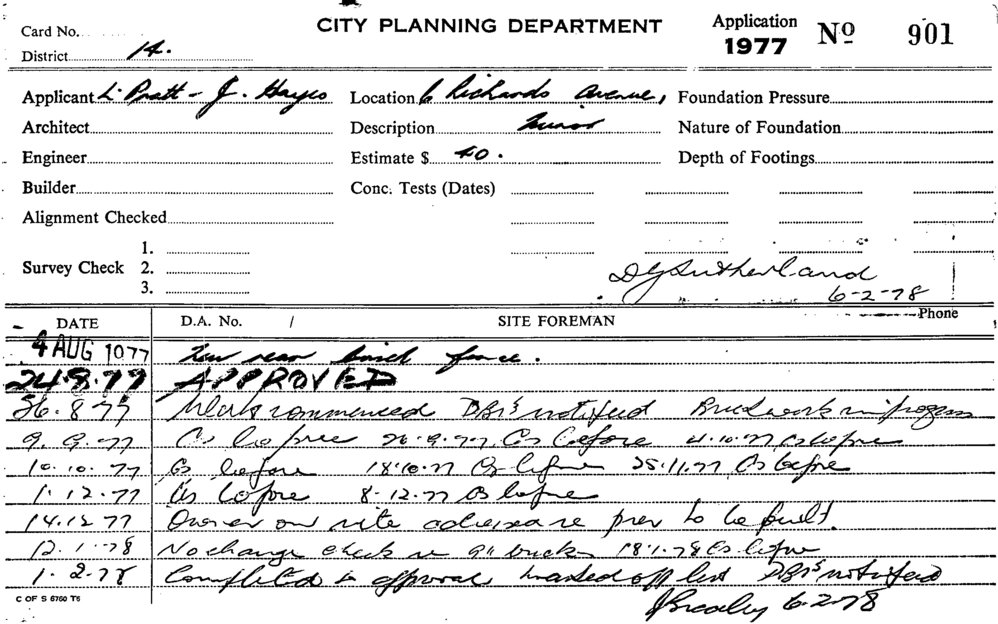 CITY PLANNING DEPARTMENT
Application
1977 Nº 901
Card No.
District 14.
Applicant L. Pratt - J. Hayes Location 6 Richards Avenue, Foundation Pressure
Architect Description Minor Nature of Foundation
Engineer Estimate $ 40. Depth of Footings
Builder Conc. Tests (Dates)
Alignment Checked
Survey Check 1.
2.
3.
DG Sutherland
6-2-78
DATE D.A. No. / SITE FOREMAN Phone
4 AUG 1977 New rear brick fence.
24.8.77 APPROVED
26.8.77 Work commenced DBI's notified Brickwork in progress
9.9.77 As before 26.9.77 As before 4.10.77 As before
10.10.77 As before 18.10.77 As before 25.11.77 As before
1.12.77 As before 8.12.77 As before
14.12.77 Owner on site to be built.
12.1.78 No change check 18.1.78 As before
1.2.78 Completed to approval marked off list DBI's notified
C OF S 6760 T6
6-2-78